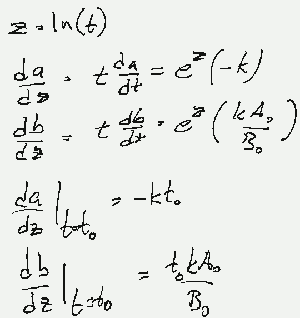 z = ln(t)
da/dz = t da/dt = e^z (-k)
db/dz = t db/dt = e^z (kA₀/B₀)
da/dz |t=t₀ = -kt₀
db/dz |t=t₀ = t₀kA₀/B₀